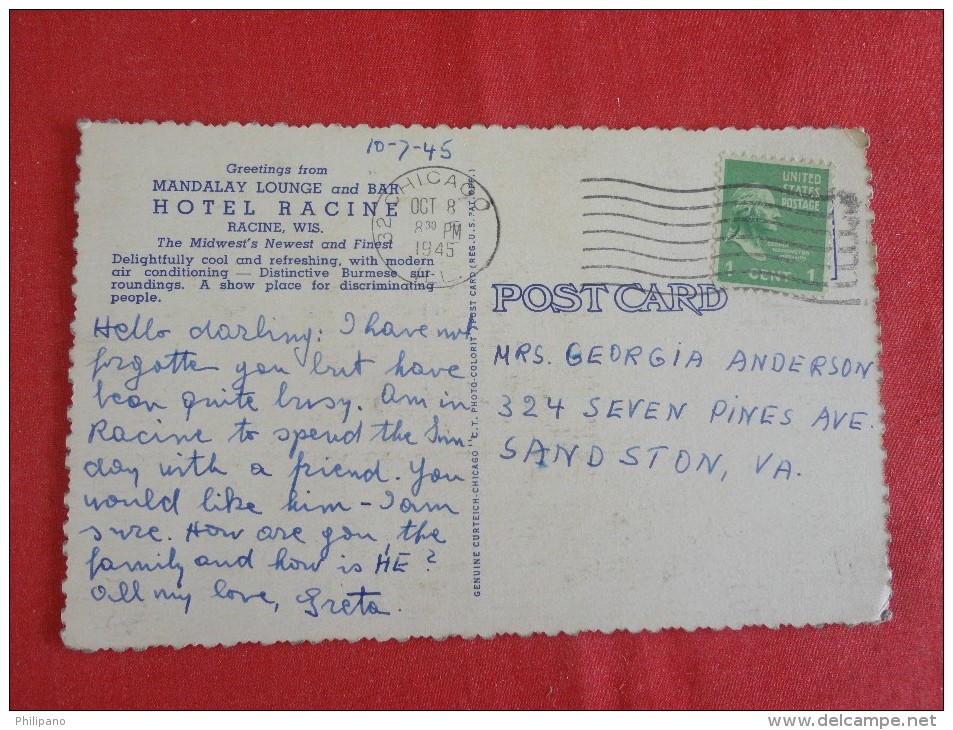 10-7-45
Greetings from
MANDALAY LOUNGE and BAR
HOTEL RACINE
RACINE, WIS.
The Midwest's Newest and Finest
Delightfully cool and refreshing, with modern
air conditioning — Distinctive Burmese sur-
roundings. A show place for discriminating
people.
Hello darling: I have not
forgotten you but have
been quite busy. Am in
Racine to spend the Sun
day with a friend. You
would like him – I am
sure. How are you, the
family and how is HE?
All my love, Greta.
GENUINE CURTEICH-CHICAGO "C.T. PHOTO-COLORIT" POST CARD (REG. U.S. PAT. OFF.)
CHICAGO
OCT 8
8 30 PM
1945
UNITED
STATES
POSTAGE
1 CENT 1
POST CARD
MRS. GEORGIA ANDERSON
324 SEVEN PINES AVE.
SANDSTON, VA.
Philipano
delcampe.net